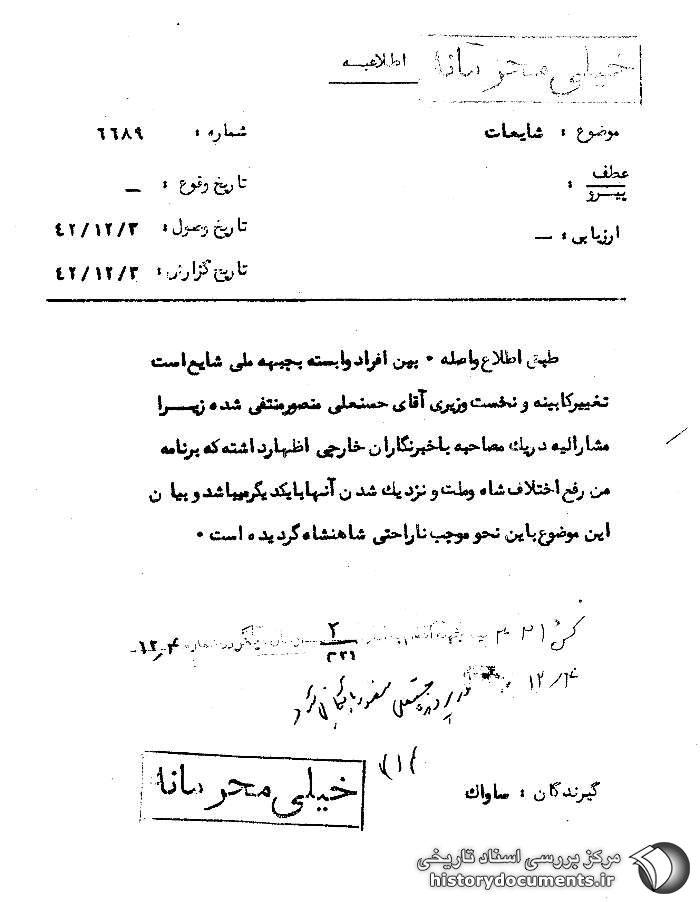 خیلی محرمانه
اطلاعیه
موضوع : شایعات
شماره : ٦٦٨٩
عطف
پیرو :
تاریخ وقوع : —
ارزیابی : —
تاریخ وصول : ٤٢/١٢/٣
تاریخ گزارش : ٤٢/١٢/٣
طبق اطلاع واصله ٠ بین افراد وابسته بجبهه ملی شایع است
تغییر کابینه و نخست وزیری آقای حسنعلی منصور منتفی شده زیرا
مشارالیه در یك مصاحبه با خبرنگاران خارجی اظهار داشته که برنامه
من رفع اختلاف شاه وملت و نزدیك شدن آنها بایکدیگر میباشد و بیان
این موضوع باین نحو موجب ناراحتی شاهنشاه گردیده است ٠
٢
٣٢١
١٢/٤
حسنعلی منصور بایگانی شود
(١)
گیرندگان : ساواك
خیلی محرمانه
مرکز بررسی اسناد تاریخی
historydocuments.ir